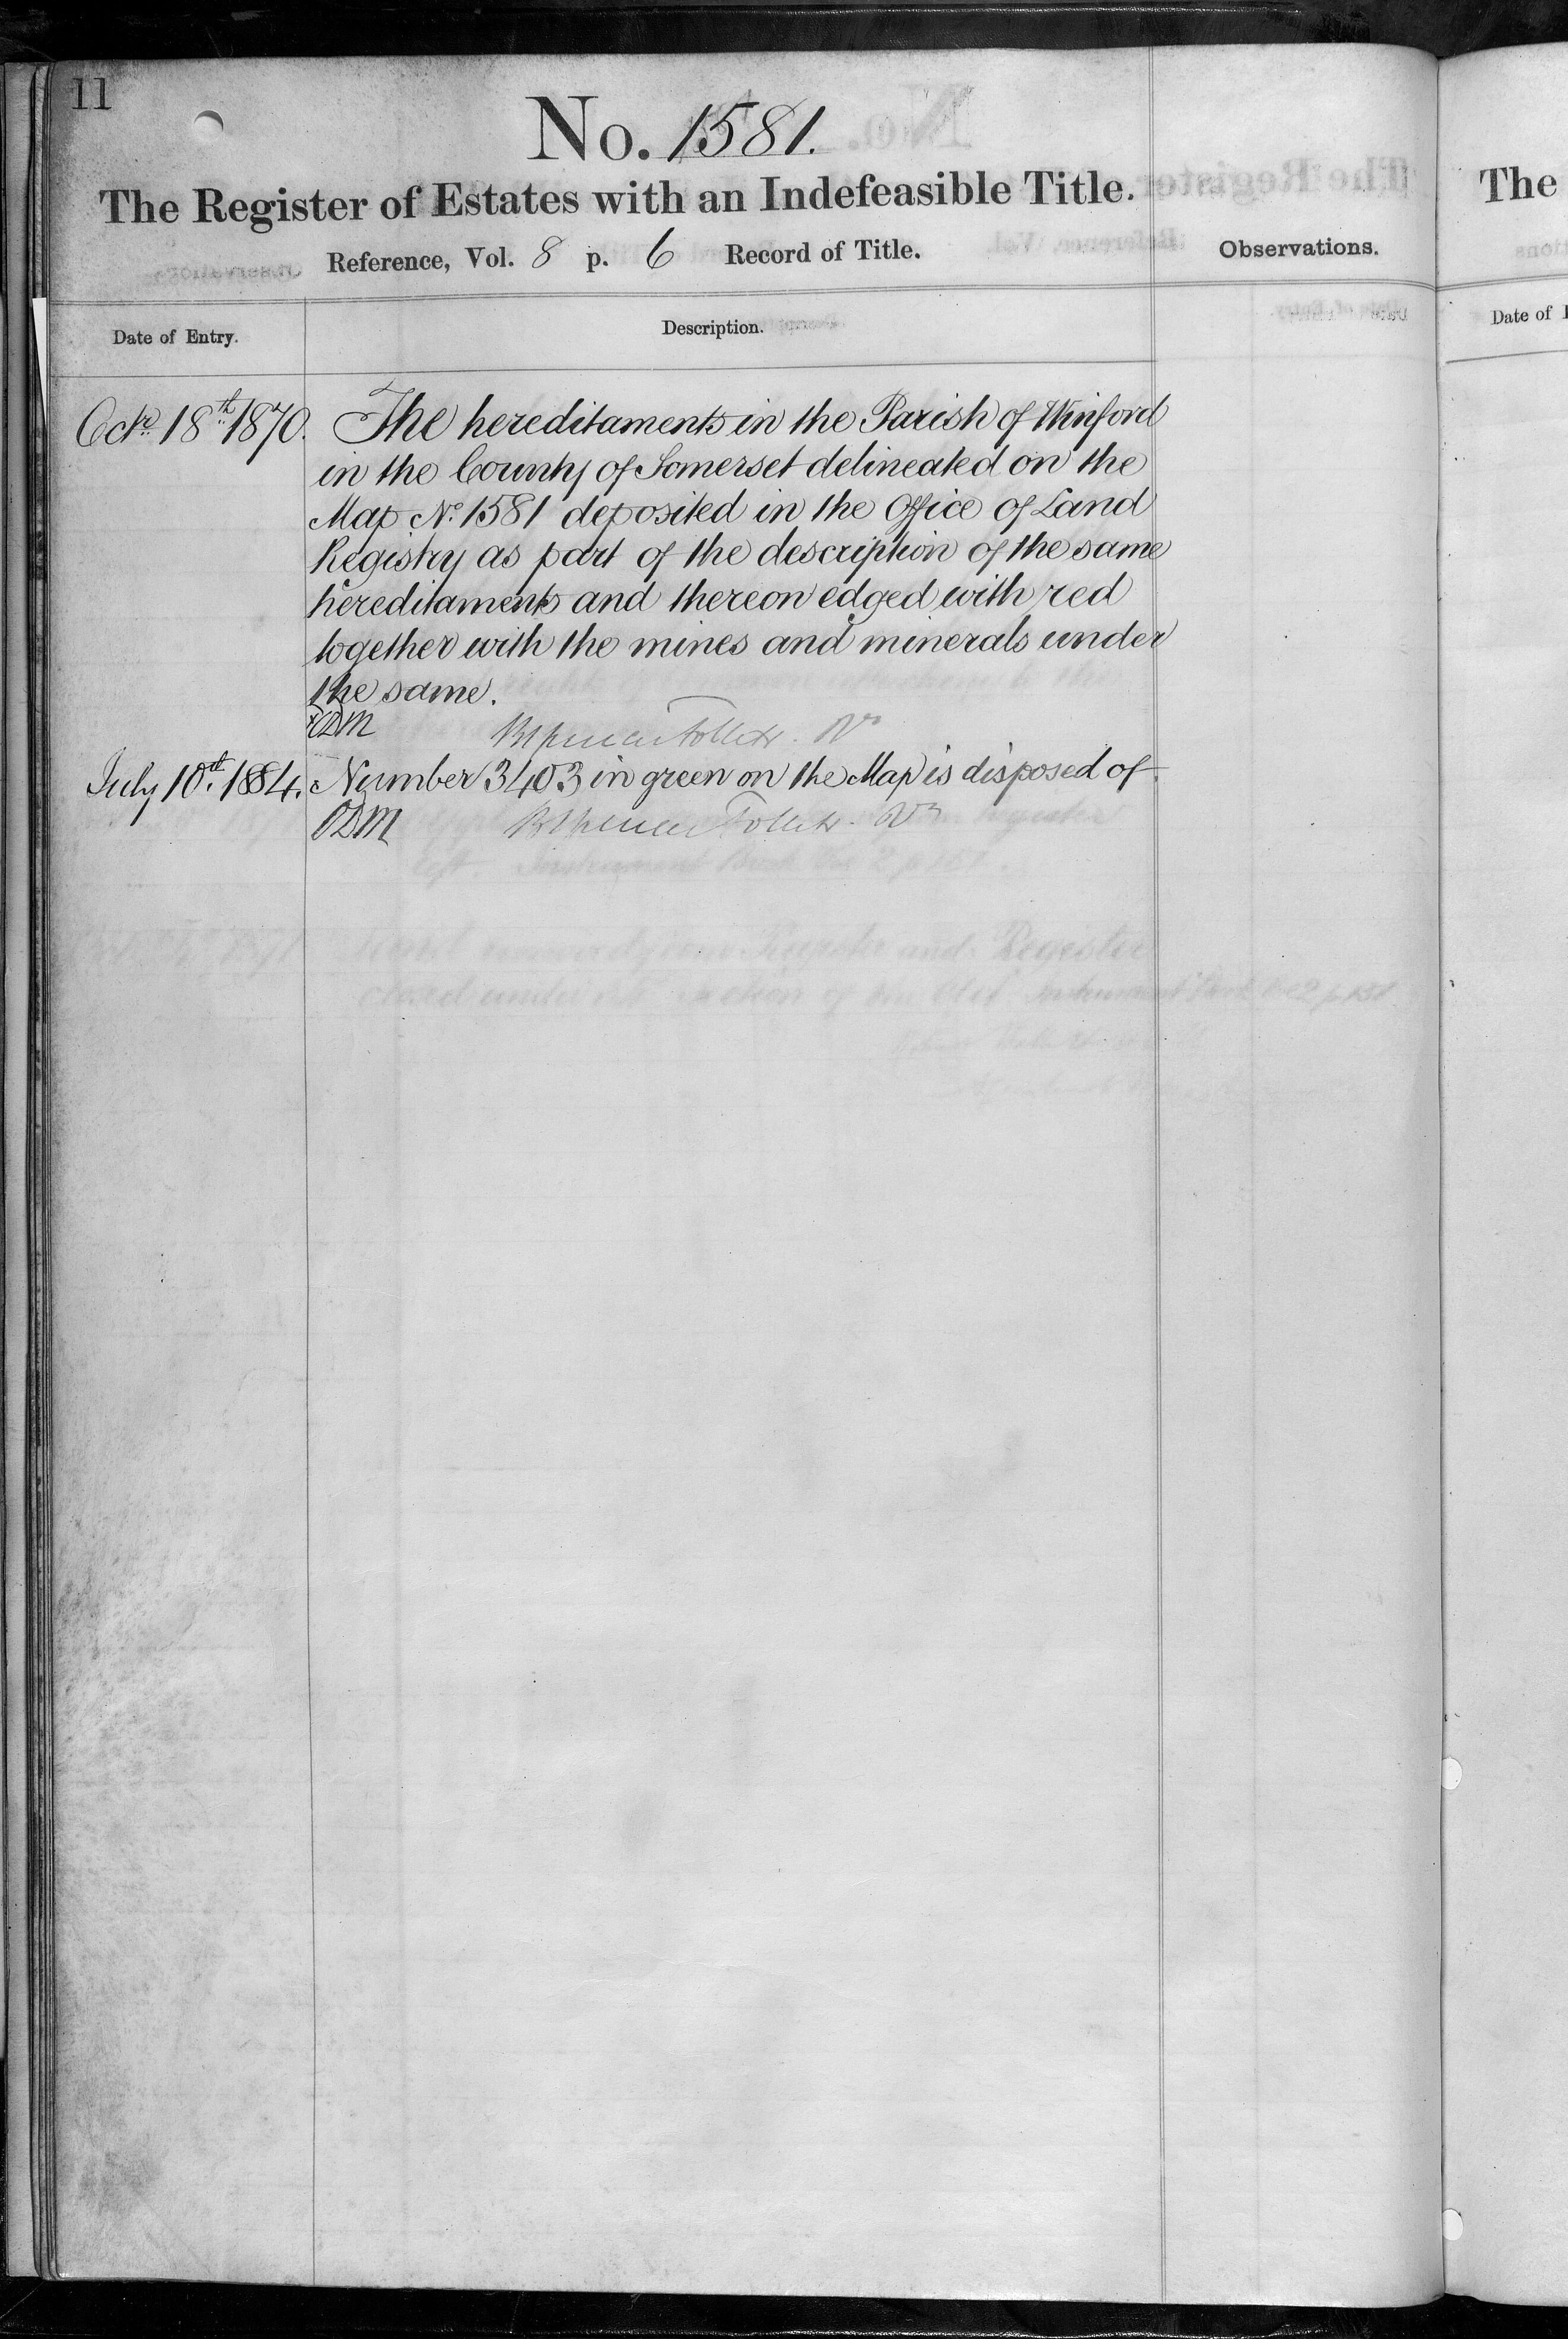 11
No. 1581.
The Register of Estates with an Indefeasible Title.
Reference, Vol. 8 p. 6 Record of Title.
Observations.
Date of Entry.
Description.
Octr. 18th 1870. The hereditaments in the Parish of Winford
in the County of Somerset delineated on the
Map No. 1581 deposited in the Office of Land
Registry as part of the description of the same
hereditaments and thereon edged with red
together with the mines and minerals under
the same.
July 10th. 1884. Number 3403 in green on the Map is disposed of.
The
Date of